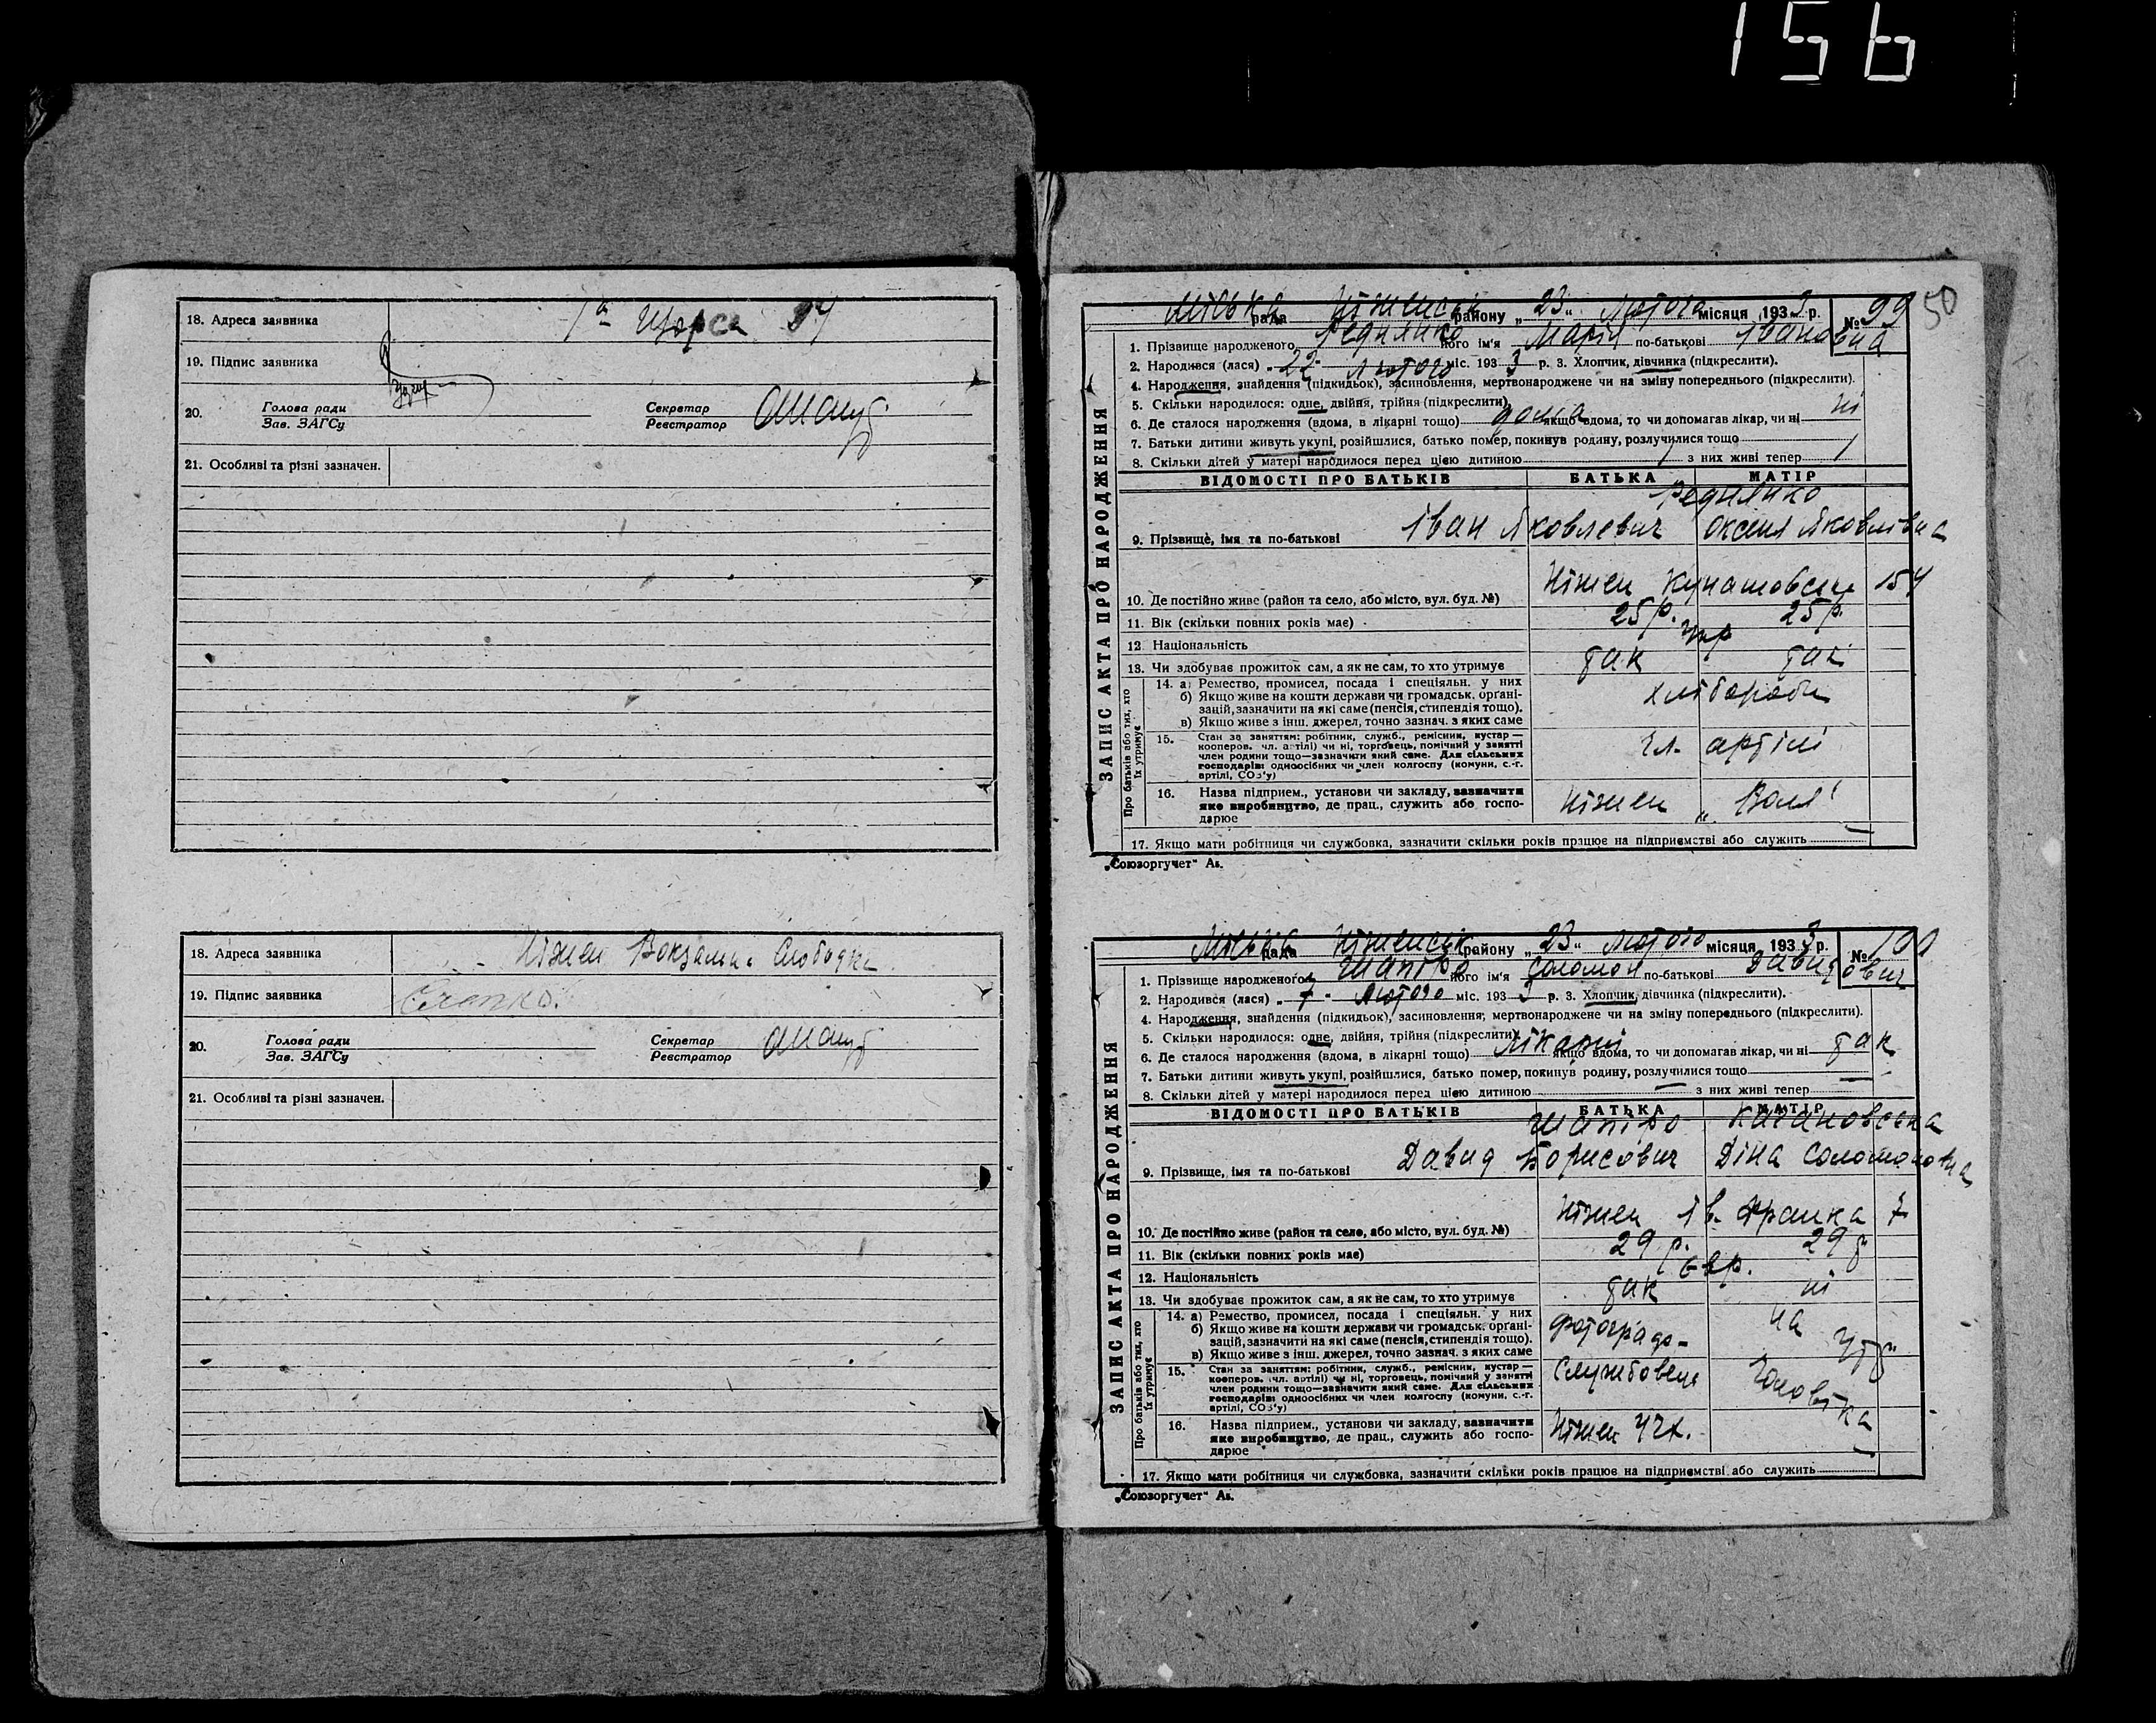 156
18. Адреса заявника 1а Щорса 34
19. Підпис заявника
20. Голова ради Секретар
Зав. ЗАГСу Реєстратор
21. Особливі та різні зазначен.
18. Адреса заявника Ніжен Вокзальна Слободка
19. Підпис заявника
20. Голова ради Секретар
Зав. ЗАГСу Реєстратор
21. Особливі та різні зазначен.
50
Міська рада Ніженськ району „23" Лютого місяця 1933 р. № 99
1. Прізвище народженого його ім'я Марія по-батькові Івановна
2. Народився (лася) „22" Лютого міс. 1933 р. 3. Хлопчик, дівчинка (підкреслити).
4. Народження, знайдення (підкидьок), засиновлення, мертвонароджене чи на зміну попереднього (підкреслити).
5. Скільки народилося: одне, двійня, трійня (підкреслити)
6. Де сталося народження (вдома, в лікарні тощо) дома якщо вдома, то чи допомагав лікар, чи ні ні
7. Батьки дитини живуть укупі, розійшлися, батько помер, покинув родину, розлучилися тощо
8. Скільки дітей у матері народилося перед цією дитиною 1 з них живі тепер 1
ЗАПИС АКТА ПРО НАРОДЖЕННЯ
ВІДОМОСТІ ПРО БАТЬКІВ БАТЬКА МАТІР
9. Прізвище, імя та по-батькові Іван Яковлевич Оксеня Яковлівна
10. Де постійно живе (район та село, або місто, вул. буд. №) Ніжен Кунашовська 154
11. Вік (скільки повних років має) 25 р. 25 р.
12. Національність Укр
13. Чи здобуває прожиток сам, а як не сам, то хто утримує так так
Про батьків або тих, хто їх утримує
14. а) Ремество, промисел, посада і спеціяльн. у них хлібороби
б) Якщо живе на кошти держави чи громадськ. органі-
зацій, зазначити на які саме (пенсія, стипендія тощо).
в) Якщо живе з інш. джерел, точно зазнач. з яких саме
15. Стан за заняттям: робітник, служб., ремісник, кустар —
кооперов. чл. артілі) чи ні, торговець, помічний у занятті
член родини тощо—зазначити який саме. Для сільських
господарів: одноосібних чи член колгоспу (комуни, с.-г.
артілі, СОЗ'у) чл. артілі
16. Назва підприєм., установи чи закладу, зазначити
яке виробництво, де прац., служить або госпо-
дарює Ніжен „Воля"
17. Якщо мати робітниця чи службовка, зазначити скільки років працює на підприємстві або служить
„Союзоргучет" Ак.
Міська рада Ніженськ району „23" Лютого місяця 1933 р. № 100
1. Прізвище народженого Шапіро його ім'я Соломон по-батькові Давидович
2. Народився (лася) „7" Лютого міс. 1933 р. 3. Хлопчик, дівчинка (підкреслити).
4. Народження, знайдення (підкидьок), засиновлення, мертвонароджене чи на зміну попереднього (підкреслити).
5. Скільки народилося: одне, двійня, трійня (підкреслити)
6. Де сталося народження (вдома, в лікарні тощо) Лікарні якщо вдома, то чи допомагав лікар, чи ні так
7. Батьки дитини живуть укупі, розійшлися, батько помер, покинув родину, розлучилися тощо
8. Скільки дітей у матері народилося перед цією дитиною — з них живі тепер —
ЗАПИС АКТА ПРО НАРОДЖЕННЯ
ВІДОМОСТІ ПРО БАТЬКІВ БАТЬКА МАТІР
Шапіро Качановська
9. Прізвище, імя та по-батькові Давид Борисович Діна Соломоновна
10. Де постійно живе (район та село, або місто, вул. буд. №) Ніжен Ів. Франка 7
11. Вік (скільки повних років має) 29 р. 29 р.
12. Національність Євр.
13. Чи здобуває прожиток сам, а як не сам, то хто утримує так ні
Про батьків або тих, хто їх утримує
14. а) Ремество, промисел, посада і спеціяльн. у них
б) Якщо живе на кошти держави чи громадськ. органі-
зацій, зазначити на які саме (пенсія, стипендія тощо). фотограф- на утр.
в) Якщо живе з інш. джерел, точно зазнач. з яких саме
15. Стан за заняттям: робітник, служб., ремісник, кустар —
кооперов. чл. артілі) чи ні, торговець, помічний у занятті
член родини тощо—зазначити який саме. Для сільських
господарів: одноосібних чи член колгоспу (комуни, с.-г.
артілі, СОЗ'у) Службовець Чоловіка
16. Назва підприєм., установи чи закладу, зазначити
яке виробництво, де прац., служить або госпо-
дарює Ніжен
17. Якщо мати робітниця чи службовка, зазначити скільки років працює на підприємстві або служить
„Союзоргучет" Ак.